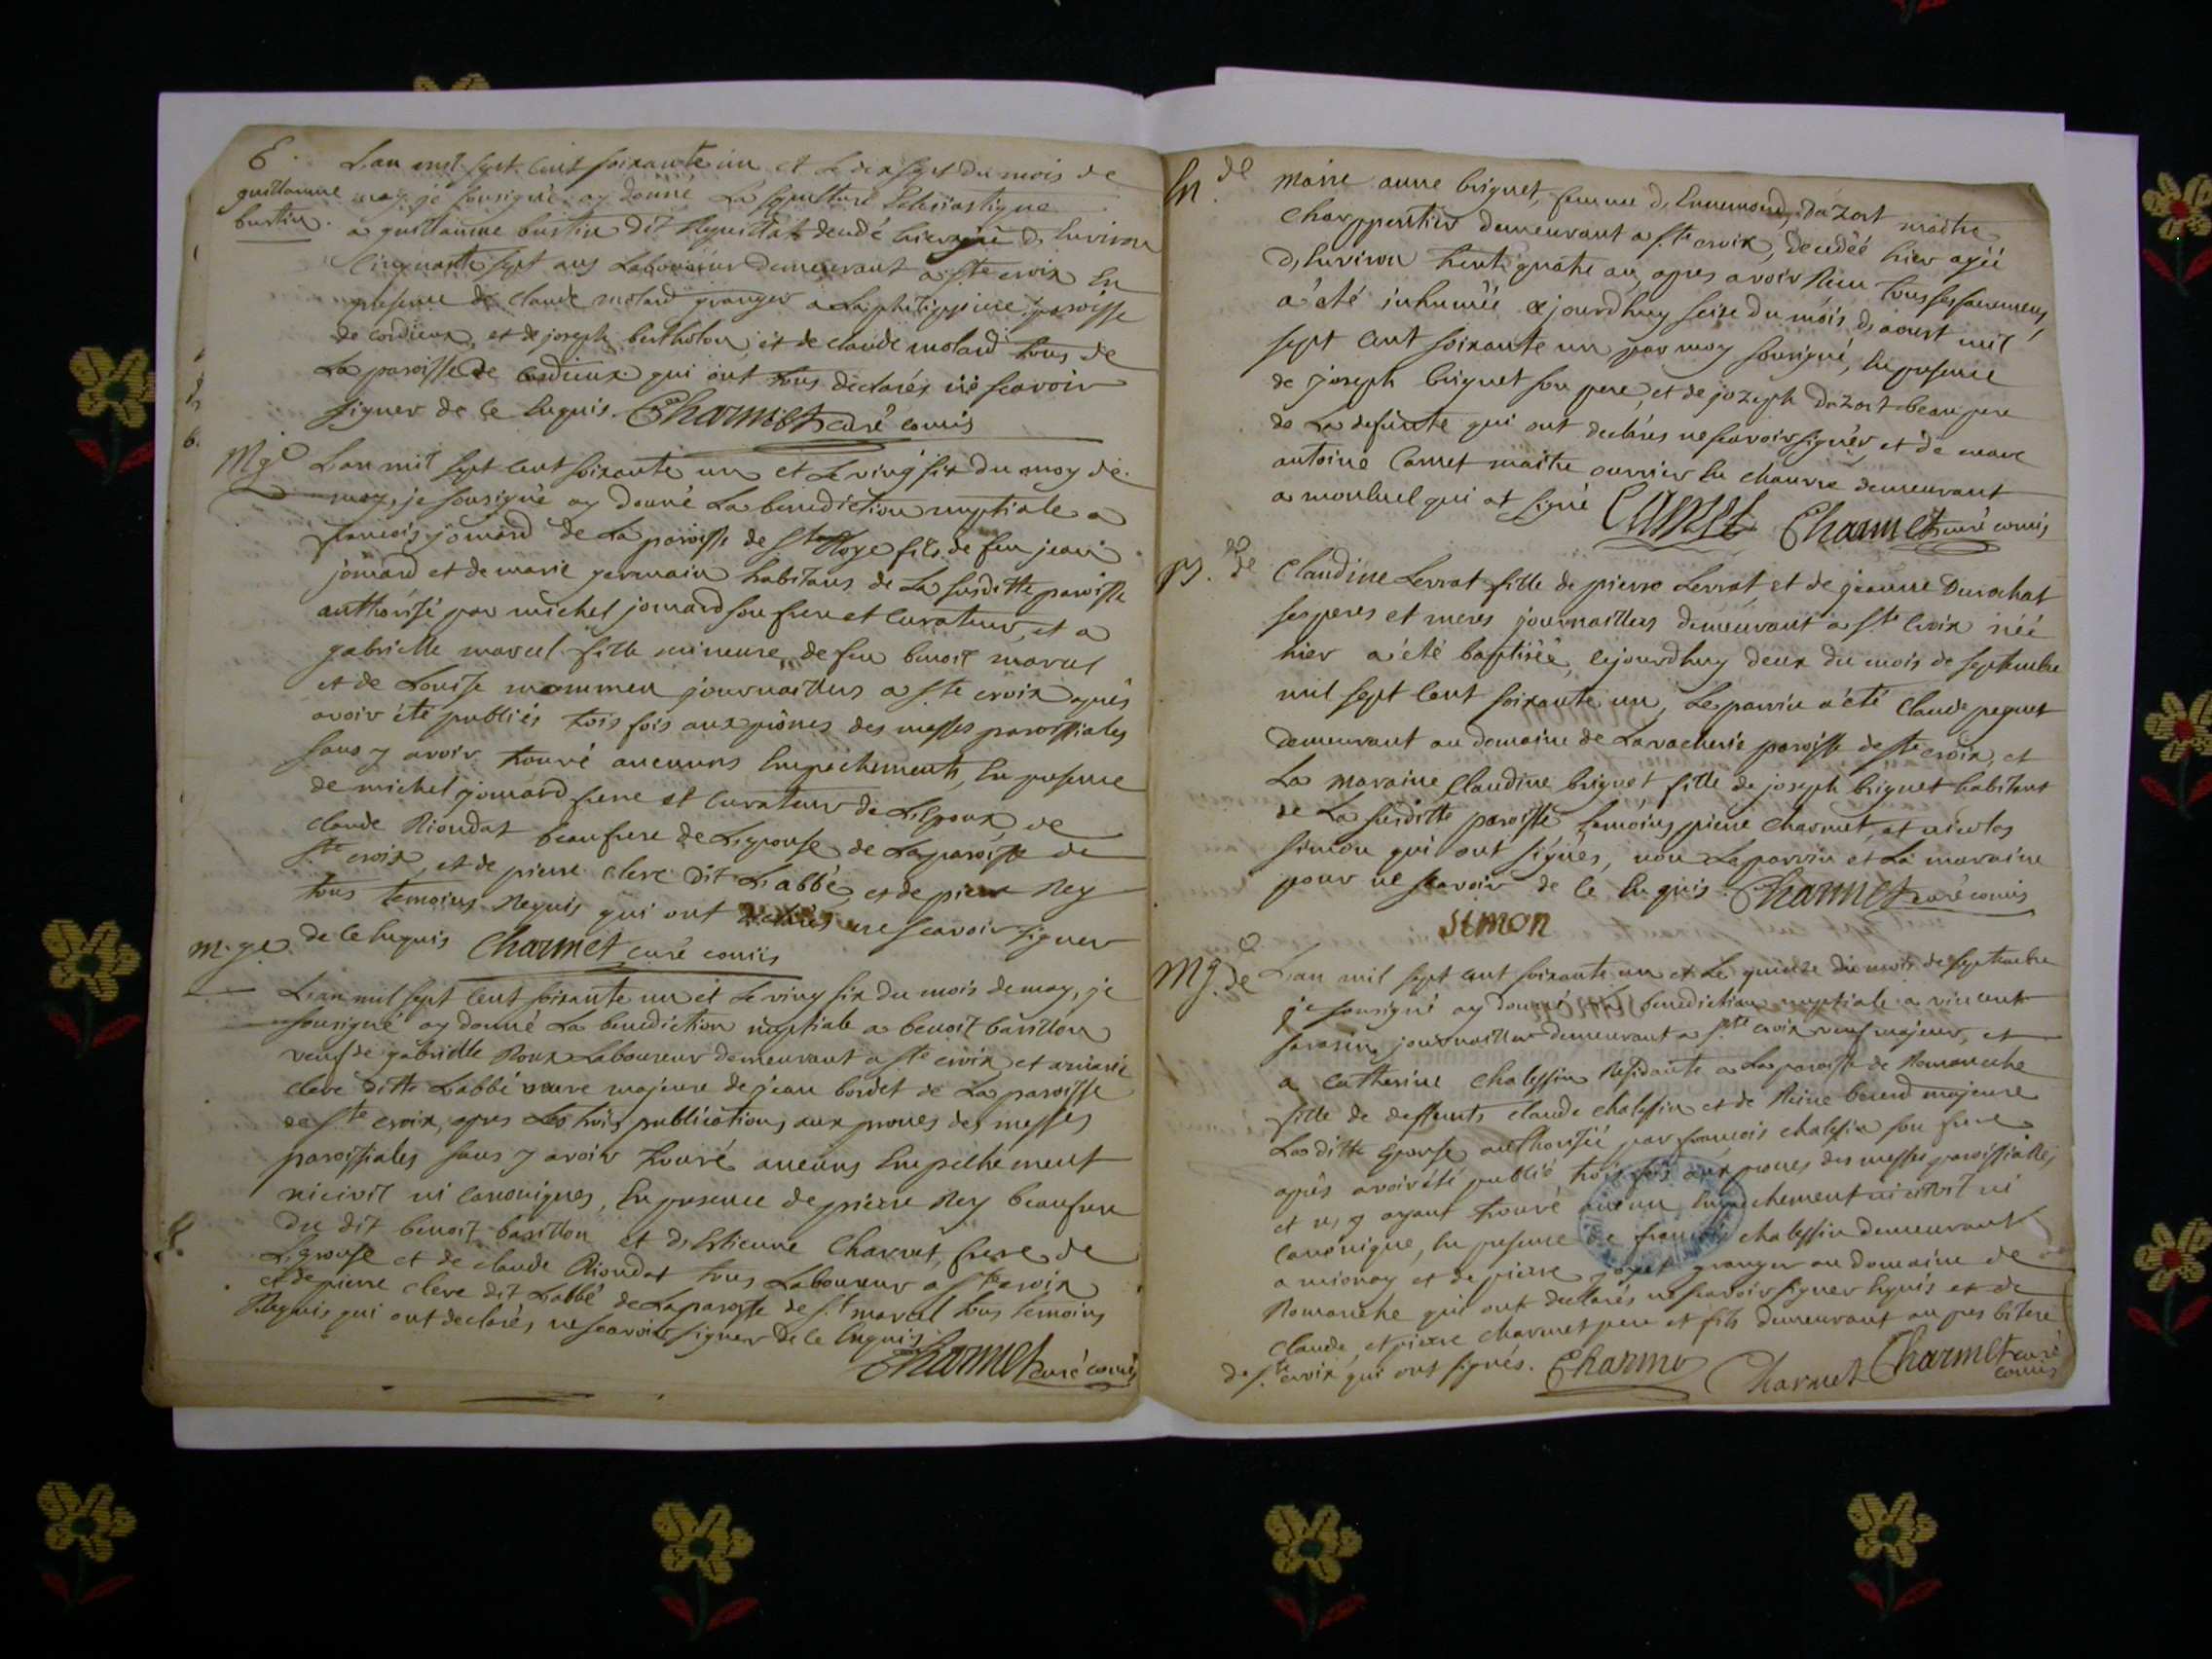 E. L'an mil sept cent soixante un et le dix sept du mois de
guillaume may, je sousigné ay donné la sepulture Eclesiastique
burtin. a guillaume burtin dit decedé hier agé d'environ
cinquante sept ans Laboureur demeurant a Ste croix En
presence de claude molard granger a la philippiere, paroisse
de cordieux, et de joseph bertholon, et de claude molard tous de
La paroisse de cordieux qui ont tous declarés ne scavoir
signer de ce Enquis. Charmet curé comis
Mge L'an mil sept cent soixante un et Le vingt six du moy de
may, je sousigné ay donné La benediction nuptiale a
francois jomard de La paroisse de fils de feu jean
jomard et de marie germain habitans de La susditte paroisse
authorisé par michel jomard son frere et curateur, et a
gabrielle marcel fille mineure de feu benoit marcel
et de Louise journailliers a Ste croix apres
avoir été publiés trois fois aux prônes des messes paroissiales
sans y avoir trouvé aucuns Empêchements, En presence
de michel jomard frere et curateur de L'Epoux, de
claude Riondat beaufrere de L'epouse de La paroisse de
Ste croix, et de pierre clerc dit L'abbé, et de pierre Rey
tous temoins Requis qui ont declarés ne scavoir signer
m.ge de ce Enquis Charmet curé comis
L'an mil sept cent soixante un et Le vingt six du mois de may, je
sousigné ay donné La benediction nuptiale a benoit barillon
veuf de gabrielle Roux Laboureur demeurant a Ste croix et a marie
clerc ditte L'abbé veuve majeure de jean bordet de La paroisse
de Ste croix, apres Les trois publications aux prones des messes
paroissiales sans y avoir trouvé aucuns Empêchement
ni civil ni canoniques, En presence de pierre Rey beaufrere
du dit benoit barillon et d'Estienne Charvet, frere de
L'Epouse et de claude Riondat tous Laboureurs a Ste croix
et de pierre clerc dit L'abbé de La paroisse de St marcel tous temoins
Requis qui ont declarés ne scavoir signer de ce Enquis
Charmet curé comis
En. de marie anne briguet, femme d'Ennemond Dazort maître
Charppentier demeurant a Ste croix, decedée hier agée
d'Environ trente quatre an, apres avoir Reçu tous ses sacremens,
a été inhumée aujourdhuy seize du mois d'aoust mil
sept cent soixante un par moy sousigné, En presence
de joseph briguet son pere, et de jozeph Dazort beaupere
de La defunte qui ont declarés ne scavoir signer, et de marc
antoine Carret maitre ouvrier En chanvre demeurant
a monluel qui at signé Charmet curé comis
B. de Claudine Serrat fille de pierre Serrat et de jeanne Durochat
ses peres et meres journailliers demeurant a Ste Croix née
hier a été baptisée, cejourdhuy deux du mois de septembre
mil sept cent soixante un, Le parrin a été Claude peguet
demeurant au domaine de Lavacherie paroisse de Ste croix, et
La maraine Claudine briguet fille de joseph briguet habitant
de La susditte paroisse temoins pierre charmet, et nicolas
simon qui ont signés, non Le parrin et La maraine
pour ne scavoir de ce Enquis Charmet curé comis
simon
Mg. de L'an mil sept cent soixante un et Le quinze du mois de septembre
je sousigné ay donné La benediction nuptiale a vincent
sarasin journaillier demeurant a Ste croix veuf majeur, et
a catherine chalessin Residante a La paroisse de Romaneche
fille de deffunts claude chalessin et de Reine bererd majeure
Laditte Epouse authorisée par francois chalessin son frere
après avoir été publié trois fois aux prones des messes paroissiales,
et n'y ayant trouvé aucun Empêchement ni civil ni
canonique, En presence de francois chalessin demeurant
a mionay et de pierre granger au domaine de
Romaneche qui ont declarés ne scavoir signer Enquis et de
Claude, et pierre charmet pere et fils demeurant au pres bitere
de Ste croix qui ont signés. Charmet Charmet Charmet curé
comis